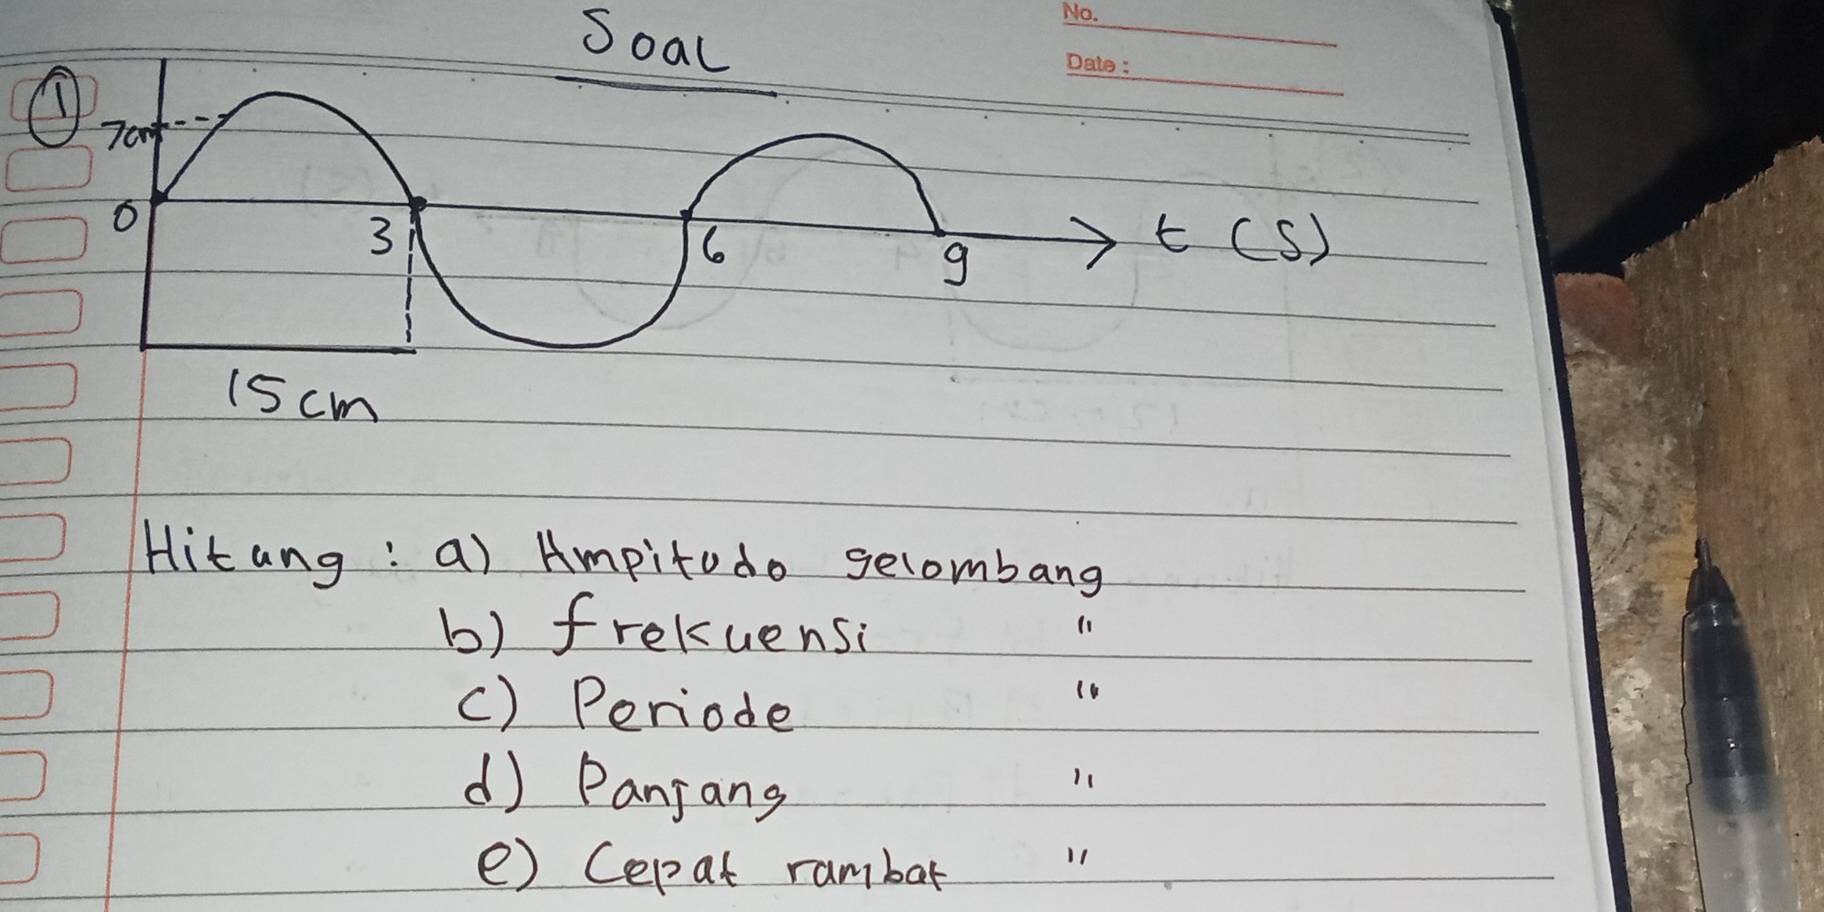 Soal
No.
Date:
①
7cm
0 3 6 9 t (s)
15 cm
Hitung : a) Ampitudo gelombang
b) frekuensi "
c) Periode "
d) Panjang "
e) Cepat rambat "